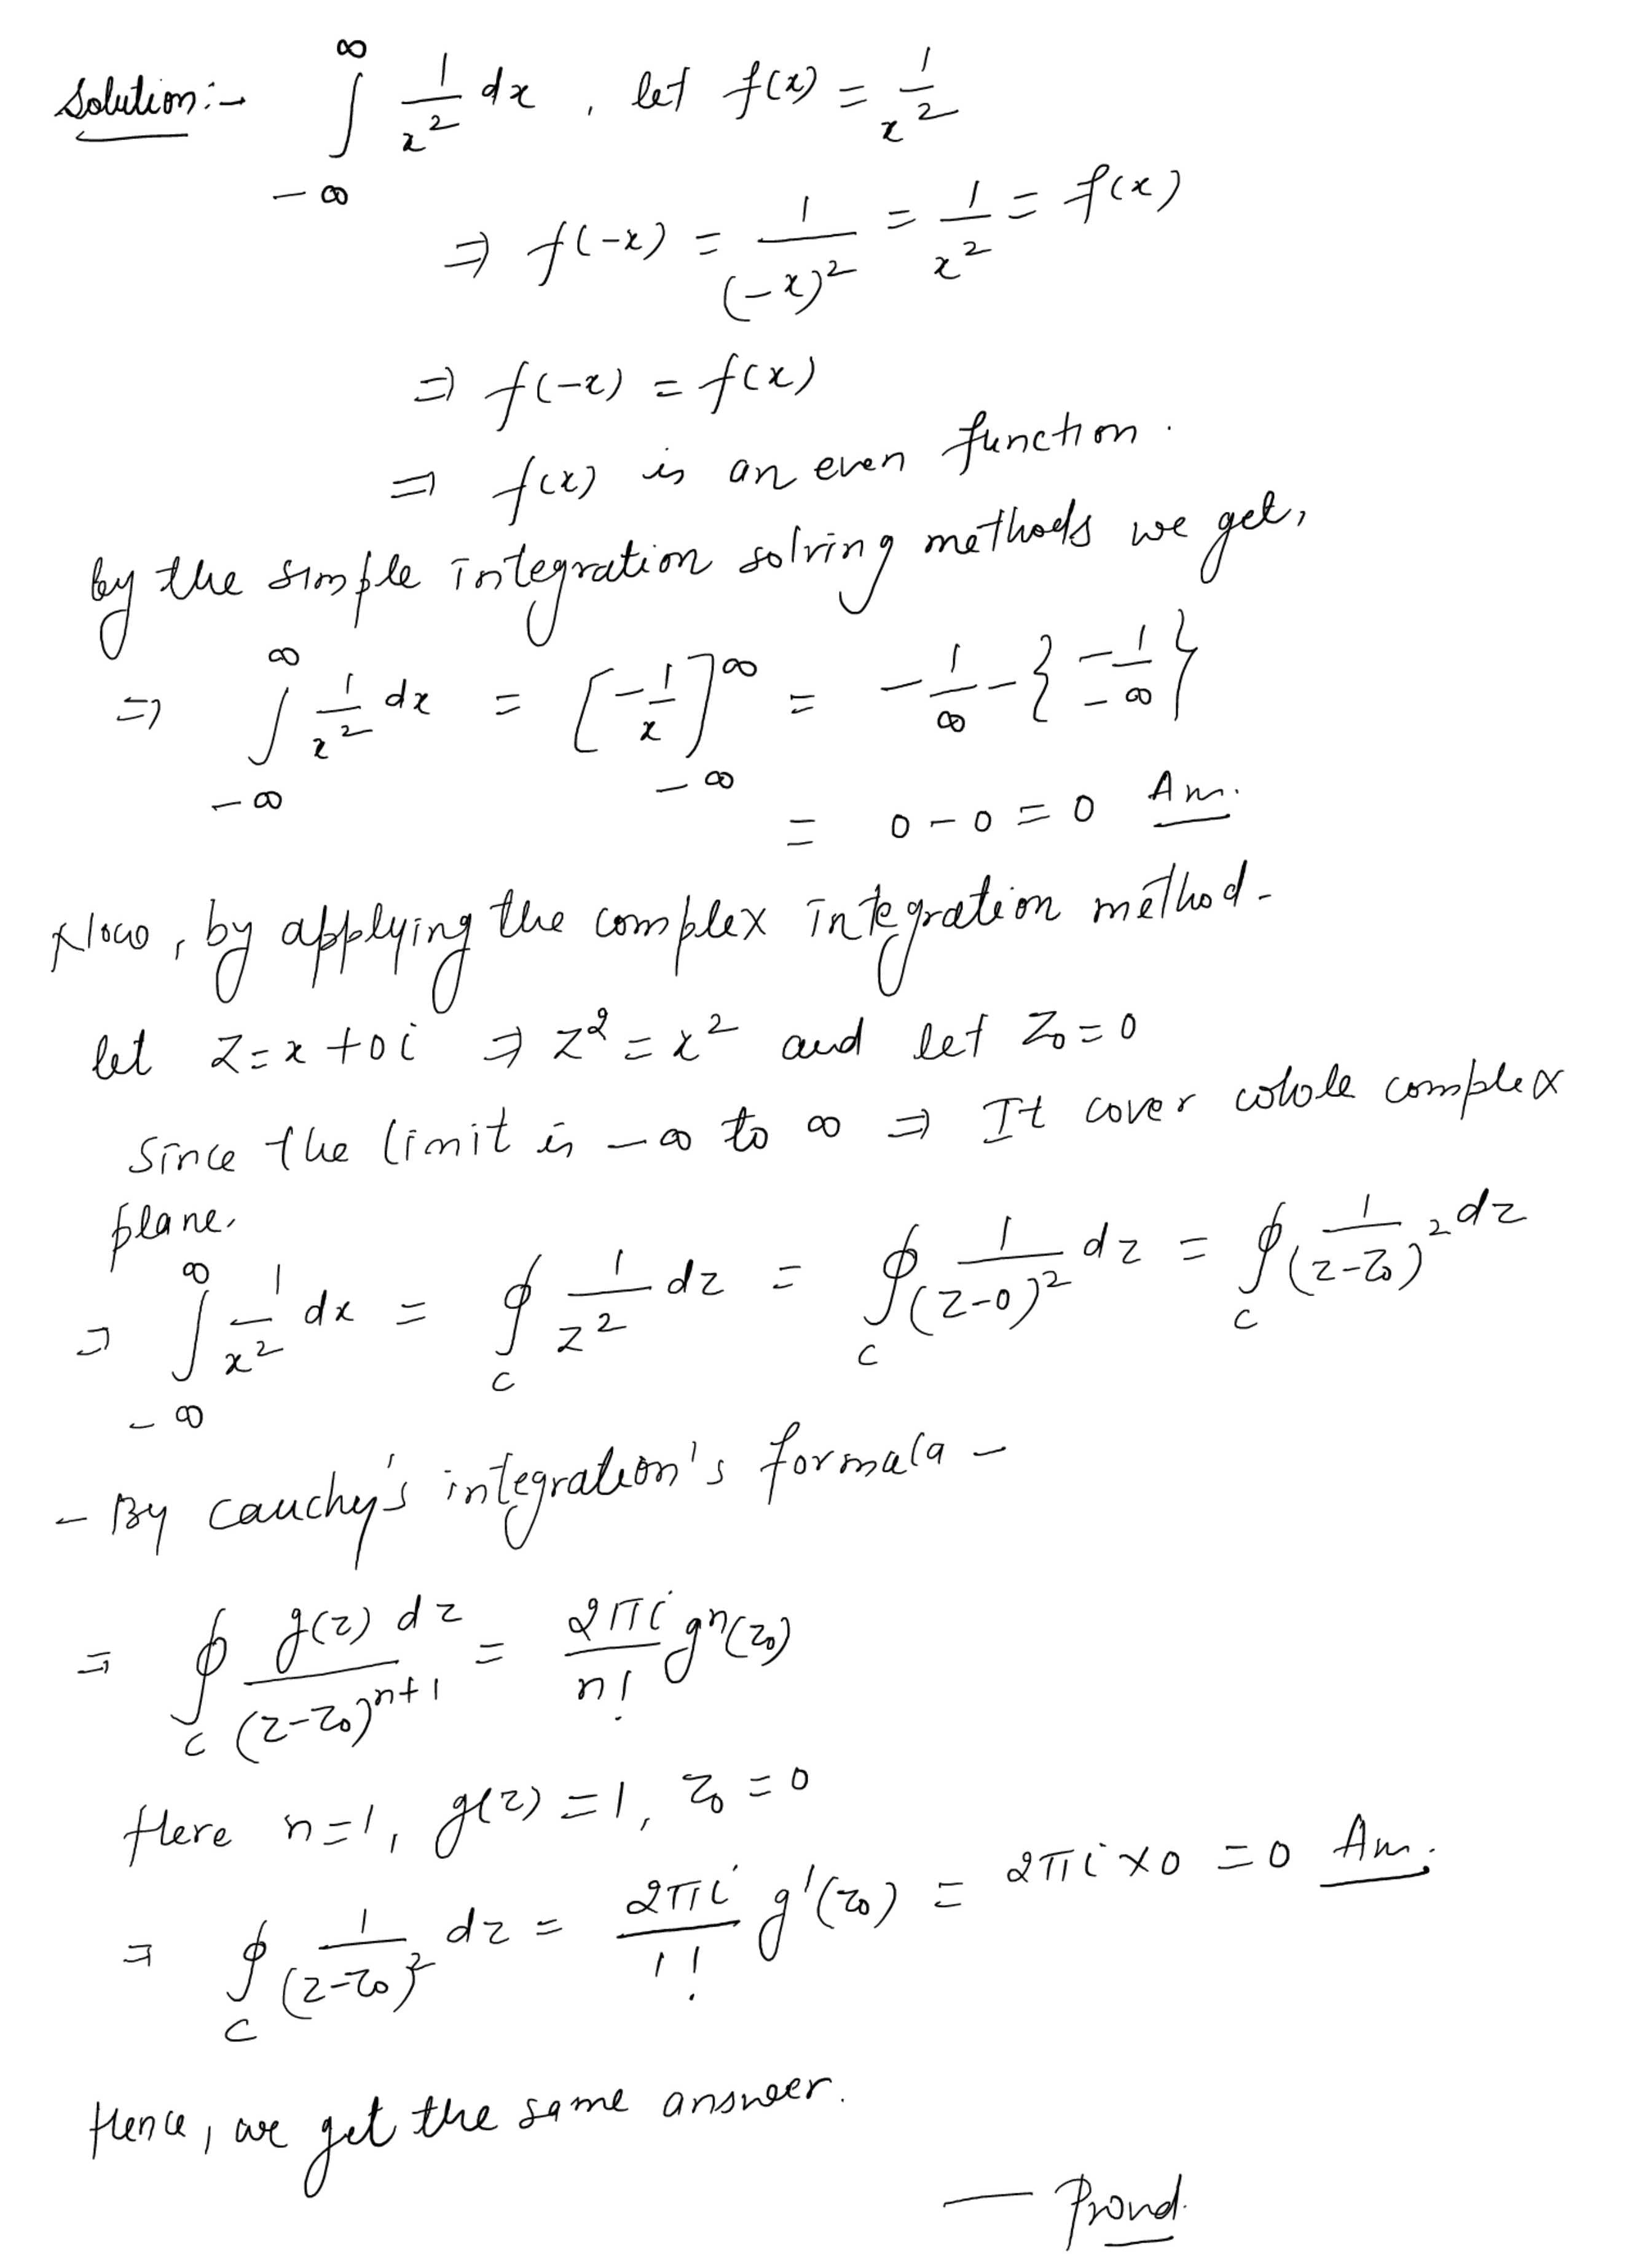 Solution:- ∫_{-∞}^{∞} 1/x² dx , let f(x) = 1/x²
⇒ f(-x) = 1/(-x)² = 1/x² = f(x)
⇒ f(-x) = f(x)
⇒ f(x) is an even function.
by the simple integration solving methods we get,
⇒ ∫_{-∞}^{∞} 1/x² dx = [-1/x]_{-∞}^{∞} = -1/∞ - {-1/-∞}
= 0 - 0 = 0 Ans.
Now, by applying the complex integration method-
let z = x + 0i ⇒ z² = x² and let z₀ = 0
Since the limit is -∞ to ∞ ⇒ It cover whole complex
plane.
⇒ ∫_{-∞}^{∞} 1/x² dx = ∮_C 1/z² dz = ∮_C 1/(z-0)² dz = ∮_C 1/(z-z₀)² dz
- By cauchy's integration's formula -
= ∮_C g(z) dz/(z-z₀)^{n+1} = 2πi/n! gⁿ(z₀)
Here n=1, g(z) = 1, z₀ = 0
⇒ ∮_C 1/(z-z₀)² dz = 2πi/1! g'(z₀) = 2πi × 0 = 0 Ans.
Hence, we get the same answer.
— Proved.